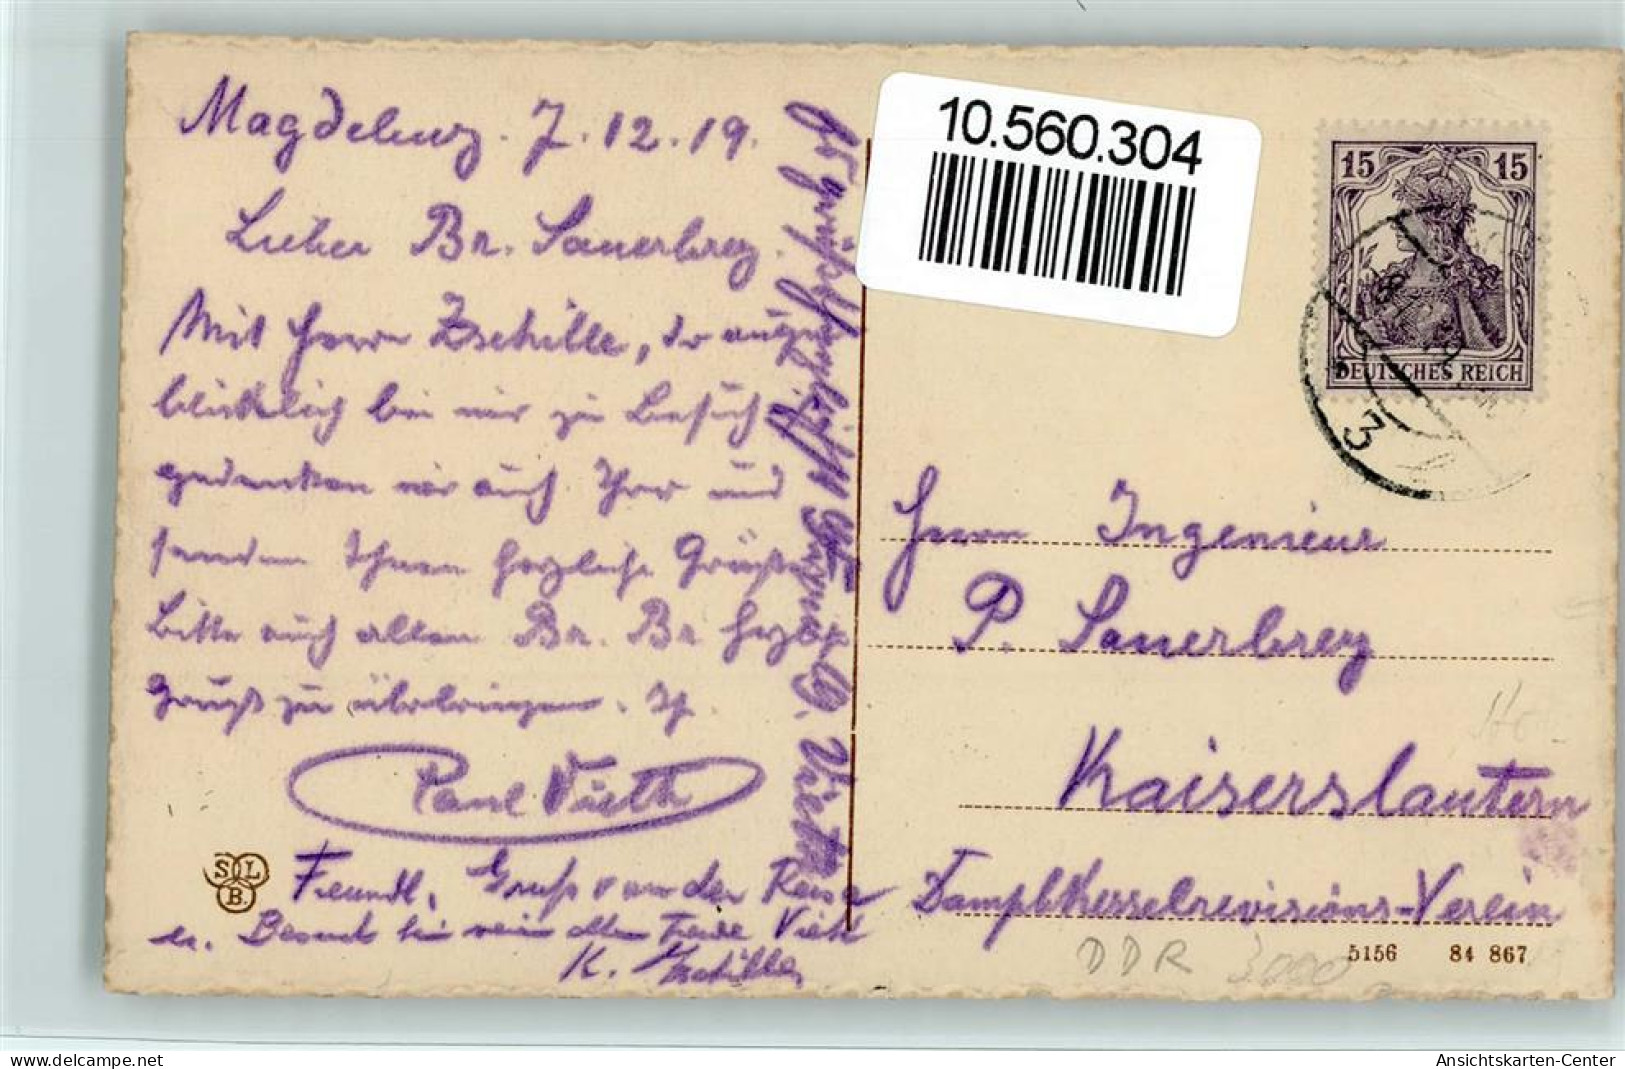 Magdeburg. 7.12.19.
Lieber Br. Sauerbrey.
Mit Herrn Zschille, der augen-
blicklich bei mir zu Besuch,
gedenken wir auch Ihrer und
senden Ihnen herzliche Grüße
Bitte auch allen Br. Br. herzl.
Gruß zu überbringen. Ihr
Paul Vieth
Freundl. Gruß von der Reise
u. Besuch bei mein alten Freunde Vieth
K. Zschille
Es grüßt herzlichst
Vieth
SLB.
10.560.304
15 15
DEUTSCHES REICH
3
Herrn Ingenieur
P. Sauerbrey
Kaiserslautern
Dampfkesselrevisions-Verein
5156 84 867
DDR 3000
www.delcampe.net
Ansichtskarten-Center